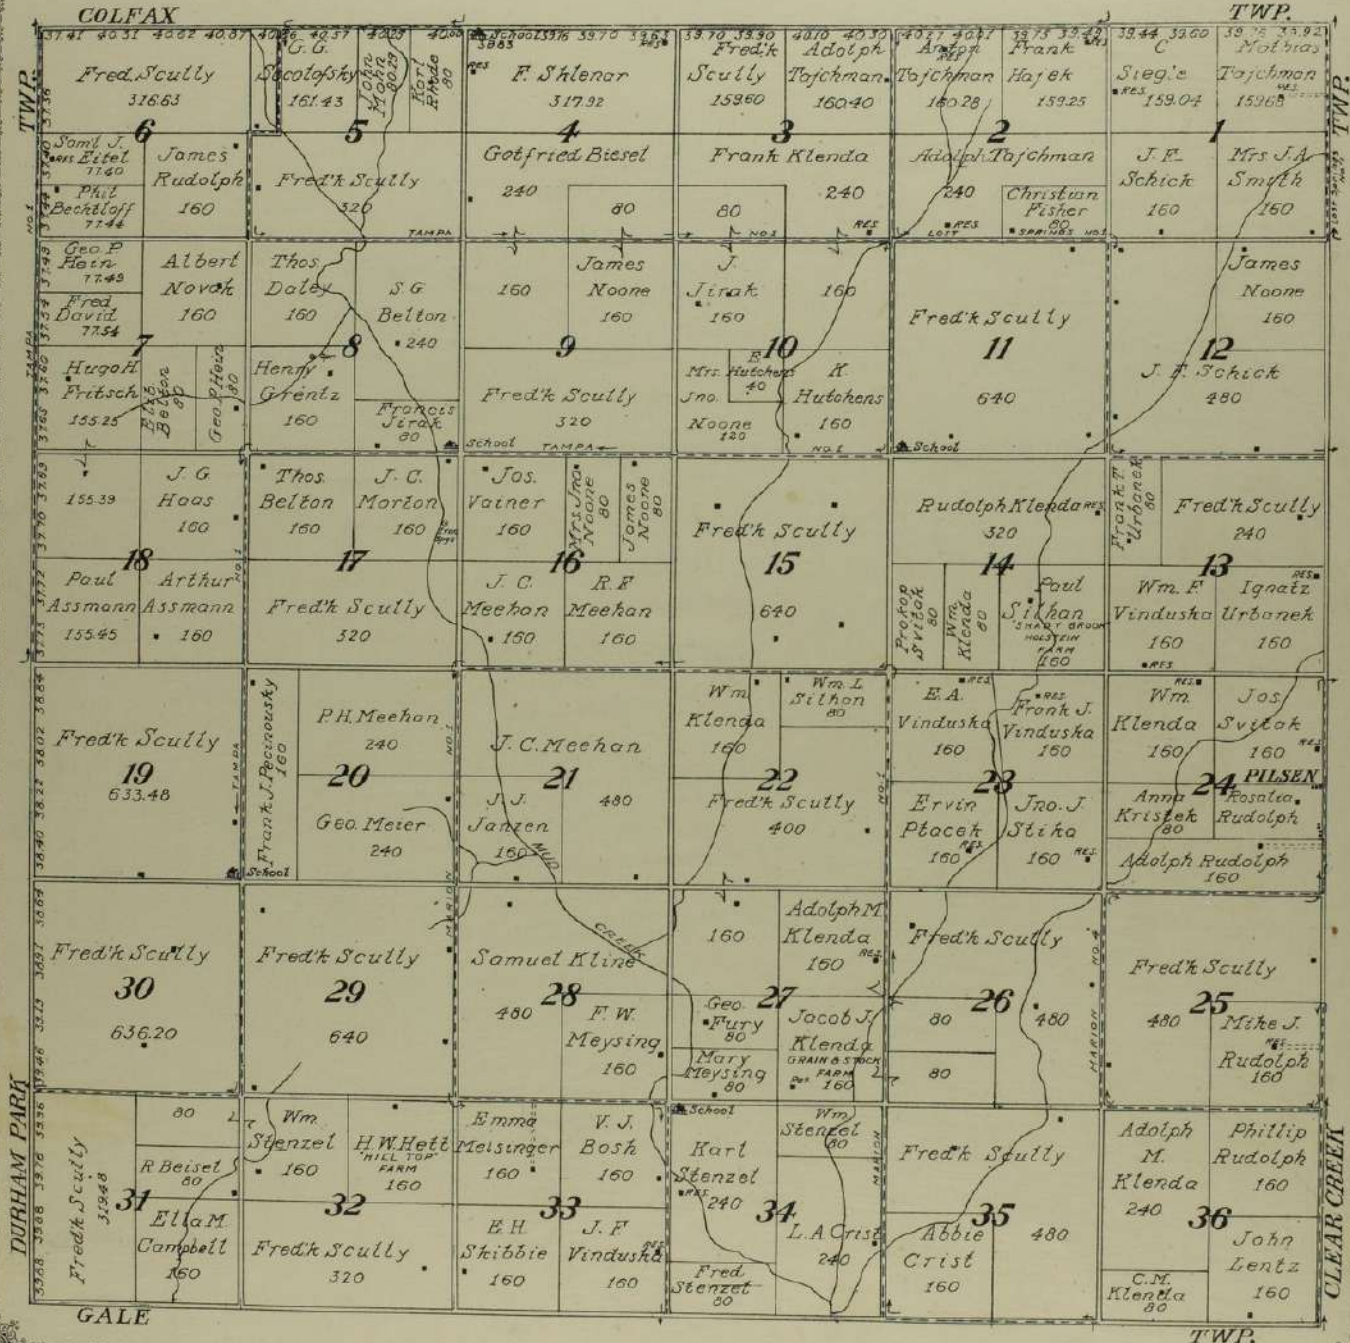 COLFAX
TWP.
TWP.
TWP.
37.41 40.31 40.62 40.87
40.57
40.00
School
39.70 39.63
39.70 39.90 40.10 40.30
39.44 39.60
39.92
Fred. Scully
316.63
6
Sam'l J.
RES Eitel
77.40
Phil
Bechtloff
77.44
James
Rudolph
160
G. G.
Socolofsky
161.43
John
Mohn
80.29
Karl
Rhode
80
5
Fred'k Scully
320
TAMPA
RES
F. Shlenar
317.92
4
Gotfried Biesel
240
80
Fred'k
Scully
159.60
Adolph
Tajchman
160.40
3
Frank Klenda
240
80
RES.
NO.1
Anton
RES
Tajchman
160.28
Frank
Hajek
159.25
2
Adolph Tajchman
240
RES.
Christian
Fisher
80
LOST SPRINGS NO.1
C
Siegle
RES.
159.04
Mathias
Tajchman
RES.
159.68
1
J. F.
Schick
160
Mrs J.A.
Smith
160
Geo. P.
Hein
77.49
Fred
David
77.54
Albert
Novak
160
7
Hugo H.
Fritsch
155.25
Eliz
Belton
80
Geo. P. Hein
80
Thos.
Daley
160
S. G.
Belton
240
8
Henry
Grentz
160
Francis
Jirak
80
School
TAMPA
NO.1
160
James
Noone
160
9
Fred'k Scully
320
J.
Jirak
160
160
10
Mrs.
Jno.
Noone
120
E
Hutchens
40
K
Hutchens
160
Fred'k Scully
11
640
School
James
Noone
160
12
J. F. Schick
480
155.39
J. G.
Haas
160
18
Paul
Assmann
155.45
Arthur
Assmann
160
Thos.
Belton
160
J. C.
Morton
160
17
Fred'k Scully
320
Jos.
Vainer
160
Mrs Jno.
Noone
80
James
Noone
80
16
J. C.
Meehan
160
R. F
Meehan
160
Fred'k Scully
15
640
Rudolph Klenda RES
320
14
Prokop
Svitak
80
Wm.
Klenda
80
Paul
Silhan
SHADY BROOK
HOLSTEIN
FARM
160
Frank T.
Urbanek
80
Fred'k Scully
240
13
Wm. F.
Vinduska
160
RES.
RES.
Ignatz
Urbanek
160
Fred'k Scully
19
633.48
TAMPA
Frank J. Pecinousky
160
P.H. Meehan
240
20
Geo. Meier
240
School
NO.1
MARION
J. C. Meehan
21
480
J. J.
Janzen
160
MUD
CREEK
Wm
Klenda
160
Wm. L
Silhan
80
22
Fred'k Scully
400
NO.1
E. A.
RES.
Vinduska
160
RES.
Frank J.
Vinduska
160
23
Ervin
Ptacek
160
RES.
Jno. J.
Stika
160
RES.
RES.
Wm.
Klenda
160
Jos.
Svitak
160
RES.
24
PILSEN
Anna
Kristek
80
Rosalia
Rudolph
Adolph Rudolph
160
Fred'k Scully
30
636.20
Fred'k Scully
29
640
Samuel Kline
480
28
F. W.
Meysing
160
160
Adolph M
Klenda
160
RES.
27
Geo.
Fury
80
Mary
Meysing
80
Jacob J.
Klenda
GRAIN & STOCK
FARM
160
Fred'k Scully
26
80
480
80
MARION
NO.4
Fred'k Scully
25
480
Mike J.
RES
Rudolph
160
Fred'k Scully
319.48
80
R Beisel
80
31
Ella M.
Campbell
160
Wm
Stenzel
160
H.W. Hett
"HILL TOP"
FARM
160
32
Fred'k Scully
320
Emma
Meisinger
160
V. J.
Bosh
160
33
E H.
Skibbie
160
J. F.
Vinduska
RES
160
School
Karl
Stenzel
RES.
240
Wm
Stenzel
80
34
L. A Crist
240
Fred
Stenzel
80
MARION
Fred'k Scully
35
Abbie
Crist
160
480
Adolph
M.
Klenda
240
Phillip
Rudolph
160
36
C.M.
Klenda
80
John
Lentz
160
DURHAM PARK
CLEAR CREEK
GALE
TWP.